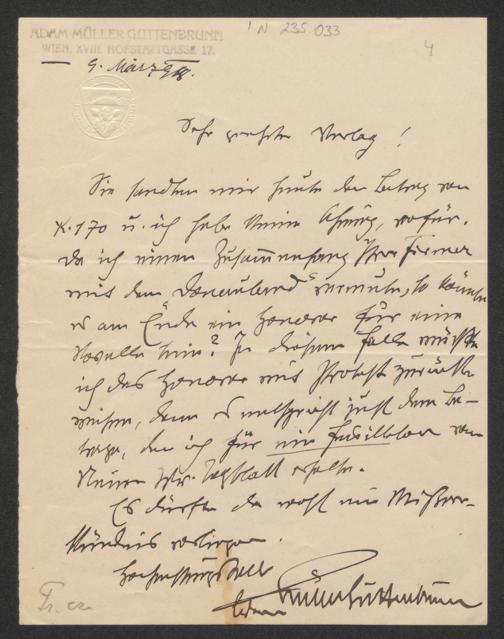 ADAM MÜLLER GUTTENBRUNN
WIEN, XVIII. HOFSTATTGASSE 17.
I N 235.033
4
9. März 918.
Sehr geehrter Verlag!
Sie sandten mir heute den Betrag von
K. 170 u. ich habe keine Ahnung, wofür.
Da ich einen Zusammenhang Ihrer Firma
mit dem "Donauland" vermute, so könnte
es am Ende ein Honorar für eine
Novelle sein? In diesem Falle müßte
ich das Honorar mit Protest zurück-
weisen, denn es entspricht just dem Be-
trage, den ich für ein Feuilleton vom
Neuen Wr. Tagblatt erhalte.
Es dürfte da wohl ein Mißver-
ständnis vorliegen.
Hochachtungsvoll
Adam Müller Guttenbrunn